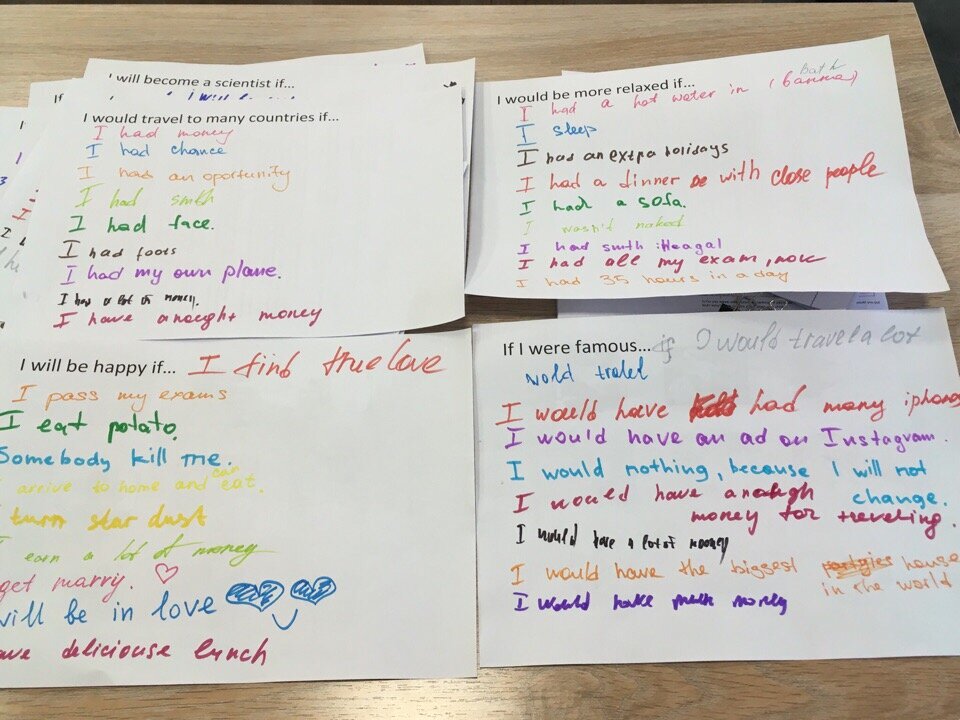 I will become a scientist if...
If
I would travel to many countries if...
I had money
I had chance
I had an oportunity
I had smth
I had face.
I had foots
I had my own plane.
I have a lot of money.
I have anought money
I would be more relaxed if...
Bath
I had a hot water in (banma)
I sleep
I had an extra holidays
I had a dinner with close people
I had a sofa.
I wasn't naked
I had smth illeagal
I had all my exam, now
I had 35 hours in a day
I will be happy if... I find true love
I pass my exams
I eat potato.
Somebody kill me.
can
arrive to home and eat.
turn star dust
earn a lot of money
get marry.
will be in love
ave deliciouse lunch
If I were famous... if I would travel a lot
I would have had many iphones
I would have an ad on Instagram.
I would nothing, because I will not
change.
I would have anough
money for traveling.
I would have a lot of money
I would have the biggest house
in the world
I would have much money